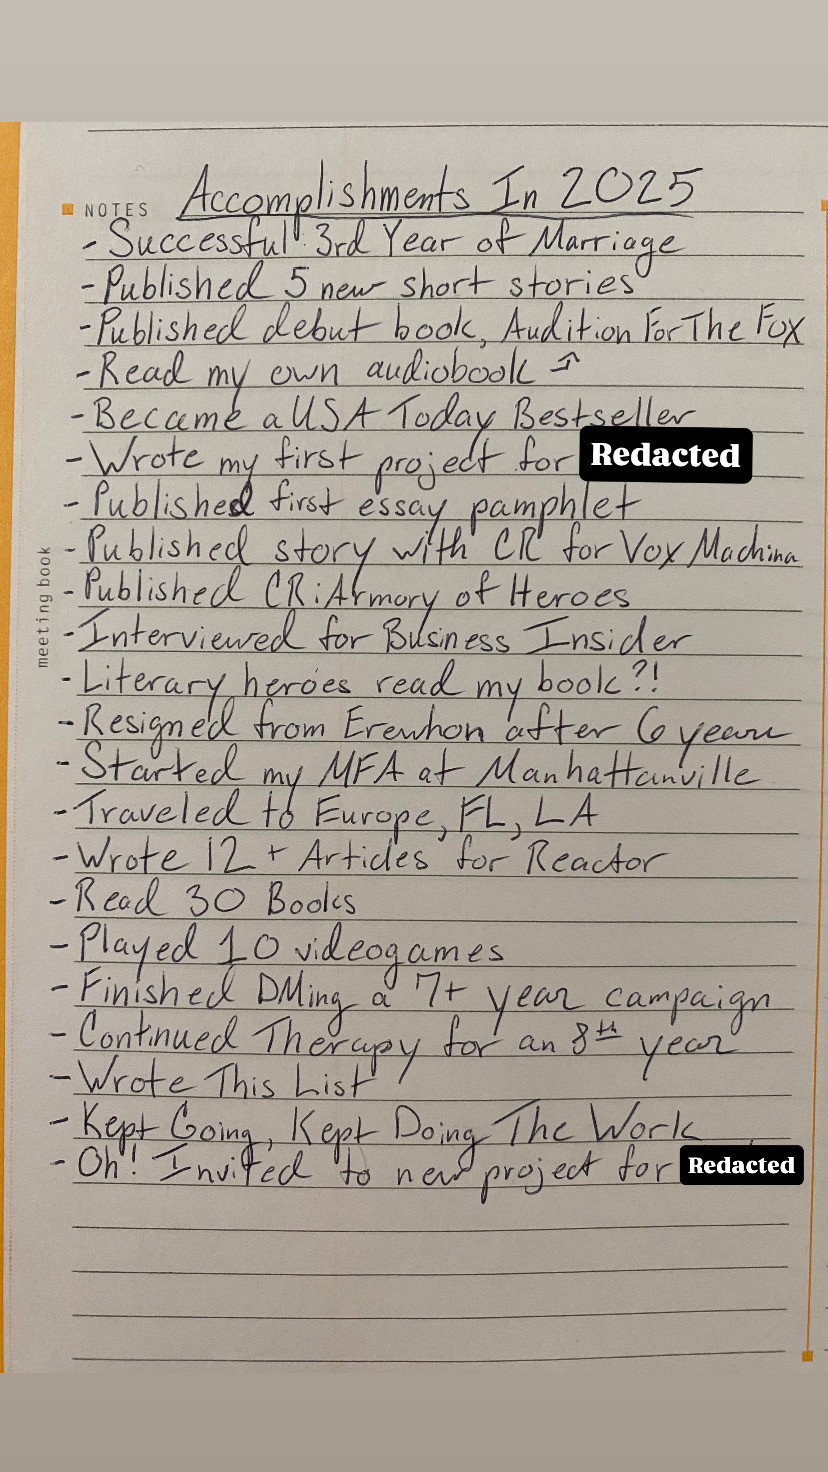 Accomplishments In 2025
NOTES
- Successful 3rd Year of Marriage
- Published 5 new short stories
- Published debut book, Audition For The Fox
- Read my own audiobook ↑
- Became a USA Today Bestseller
- Wrote my first project for Redacted
- Published first essay pamphlet
- Published story with CR for Vox Machina
- Published CR: Armory of Heroes
- Interviewed for Business Insider
- Literary heroes read my book?!
- Resigned from Erewhon after 6 years
- Started my MFA at Manhattanville
- Traveled to Europe, FL, LA
- Wrote 12+ Articles for Reactor
- Read 30 Books
- Played 10 videogames
- Finished DMing a 7+ year campaign
- Continued Therapy for an 8th year
- Wrote This List
- Kept Going, Kept Doing The Work
- Oh! Invited to new project for Redacted
meeting book